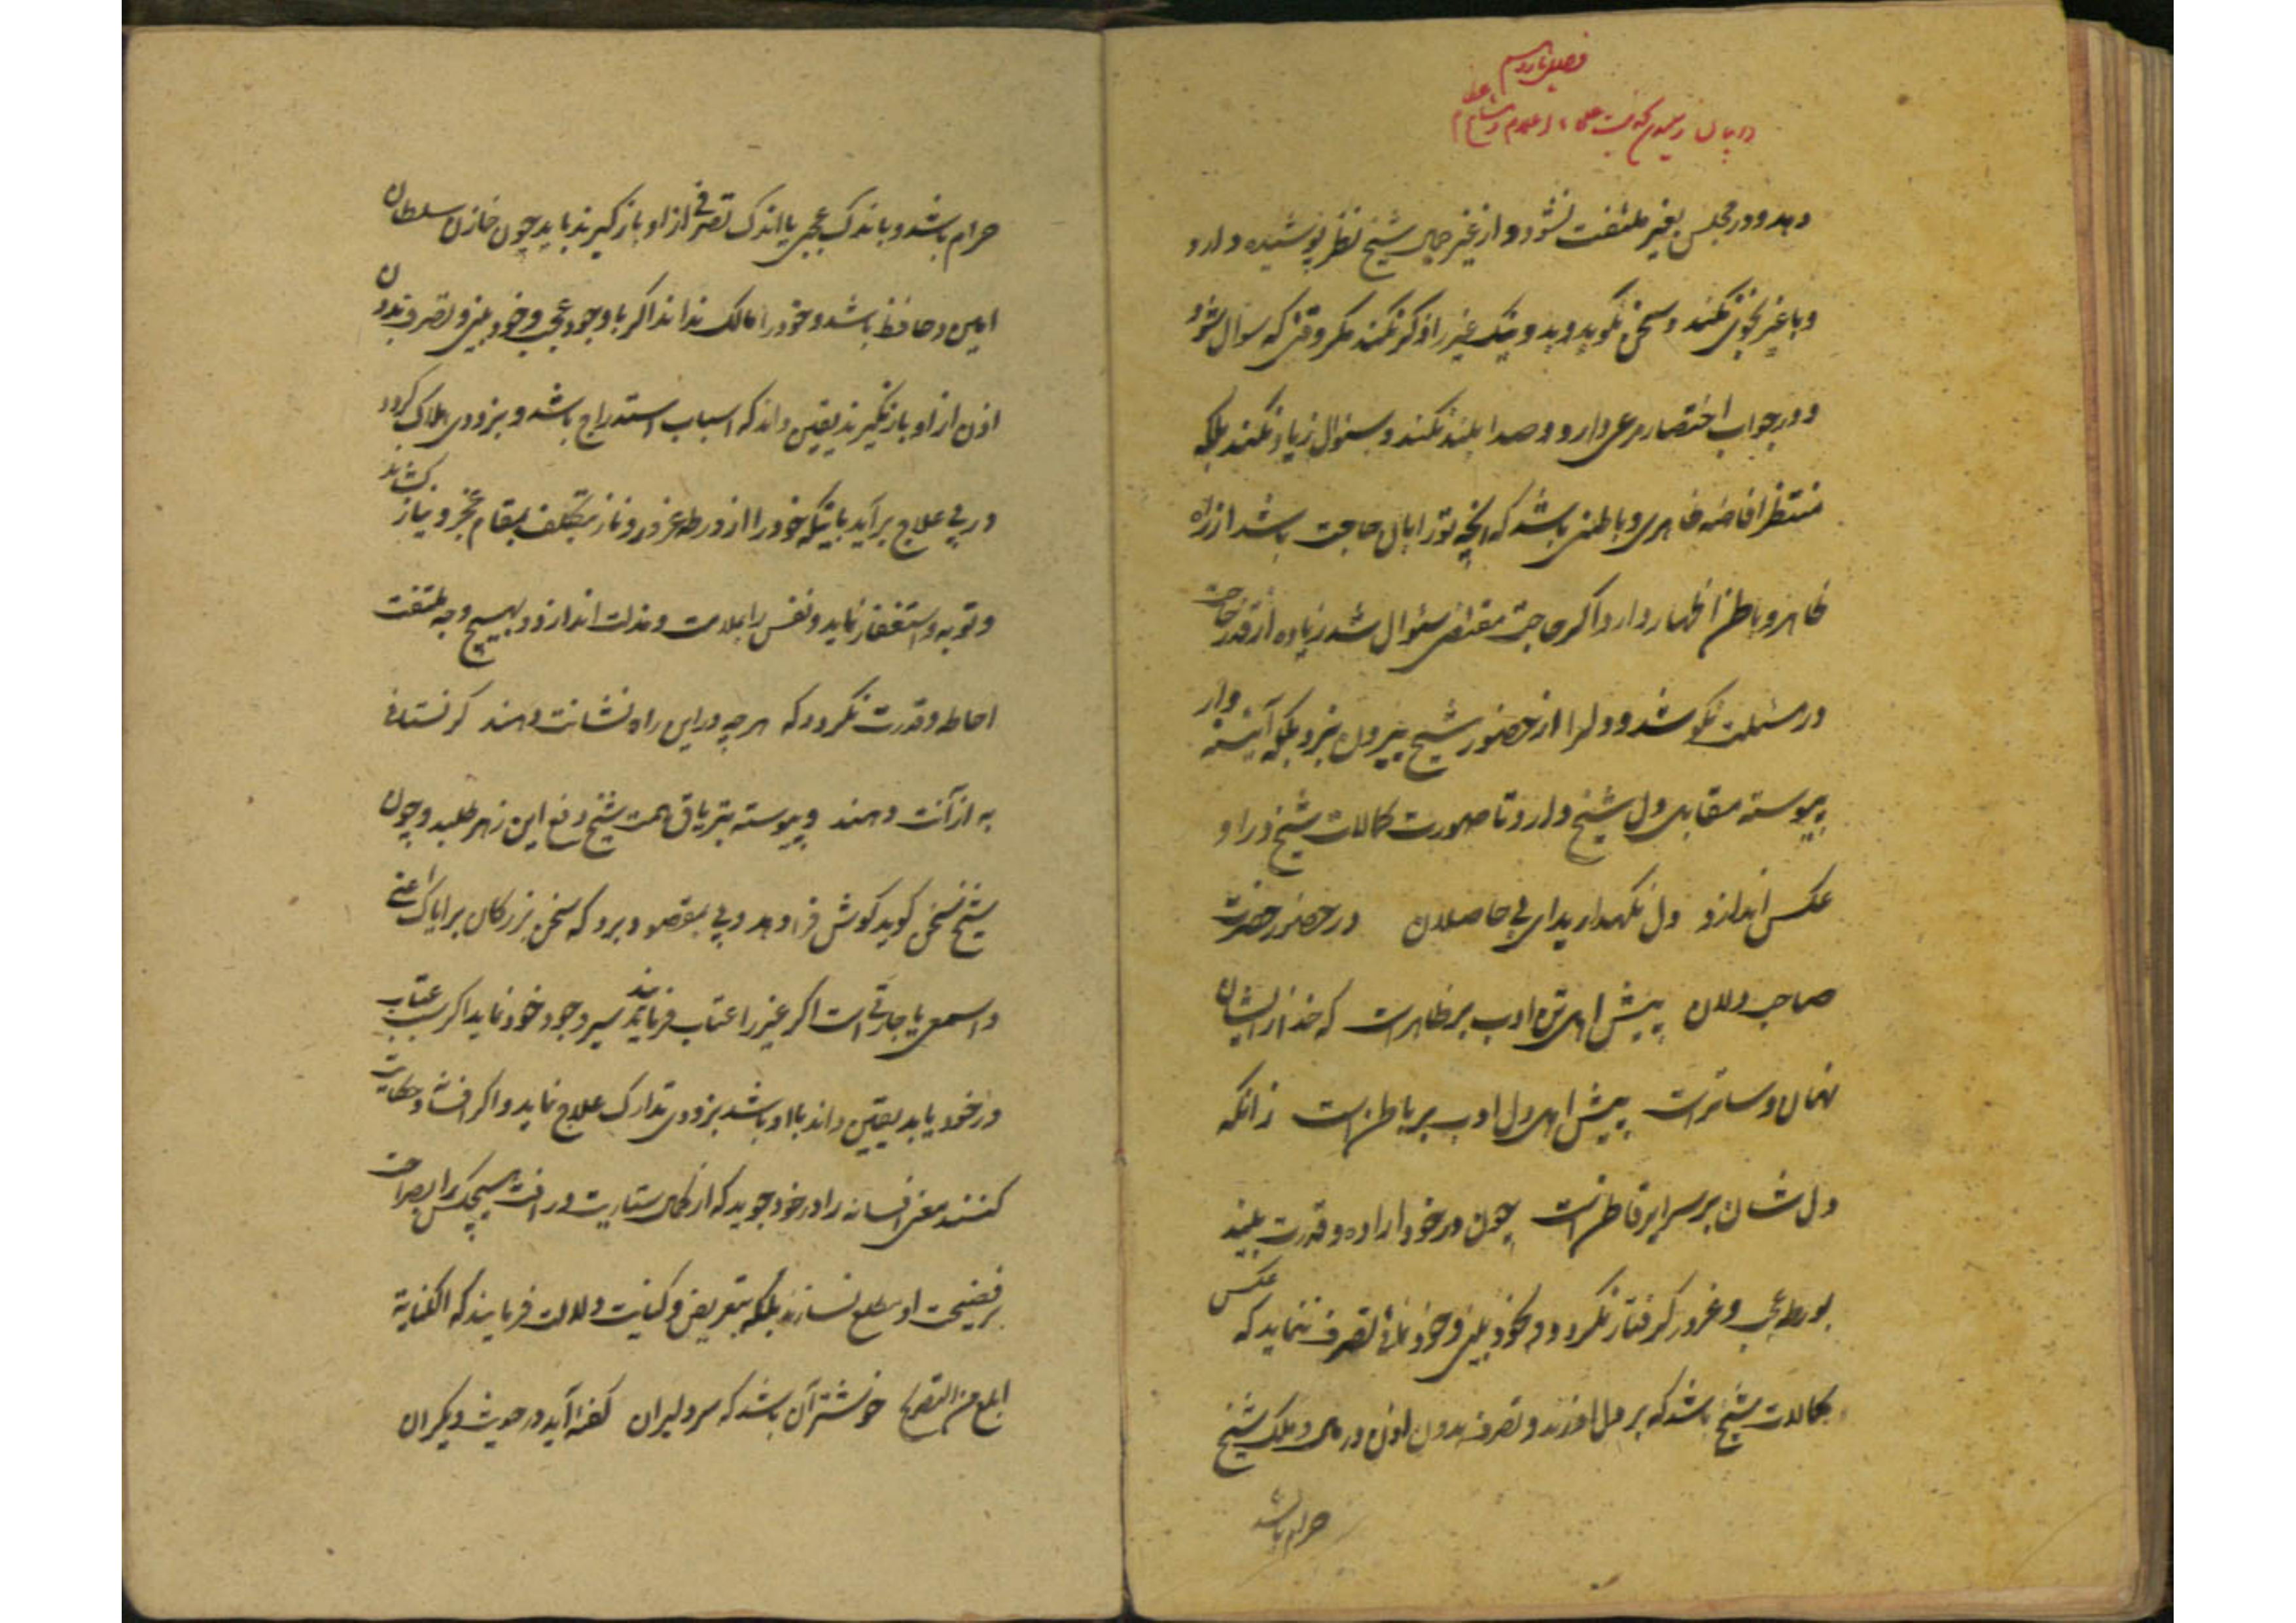 دهد و در مجلس بغیر ملتفت نشود و از غیر جمال شیخ نظر پوشیده دارد
و با غیر نجوی نکند و سخن نگوید و بد و نیک غیر را ذکر نکند مکر وقتی که سوال شود
و در جواب اختصار مرعی دارد و صدا بلند نکند و سئوال زیاد نکند بلکه
منتظر افاضه ظاهری و باطنی باشد که انچه تو را بان حاجت باشد از راه
ظاهر و باطن اظهار دارد و اکر حاجت مقتضی سئوال شد زیاده از قدر حاجت
در مسئلت نکوشد و دل را از حضور شیخ بیرون نبرد بلکه آینه وار
پیوسته مقابل دل شیخ دارد تا صورت کمالات شیخ در او
عکس اندازد دل نکهدارید ای بی حاصلان در حضور حضرت
صاحب دلان پیش اهل تن ادب بر ظاهرست که خدا زایشان
نهان و ساترست پیش اهل دل ادب بر باطن است زانکه
دلشان بر سرایر فاطن است چون در خود اراده و قدرت بیند
بورطه عجب و غرور کرفتار نکردد و بخود بینی و خود نمائی تصرف ننماید که عکس
کمالات شیخ باشد که بر دل افتد و تصرف بدون اذن در مال و ملک شیخ
حرام باشد
حرام باشد و باندک عجبی یا اندک تصرفی از او باز کیرند باید چون خازن سلطان
امین و حافظ باشد و خود را مالک نداند اکر با وجود عجب و خود بینی و تصرف بدون
اذن از او باز نکیرند یقین داند که اسباب استدراج باشد و بزودی هلاک کردد
در پی علاج برآید باینکه خود را از ورطه غرور و ناز بتکلف بمقام عجز و نیاز کشاند
و توبه و استغفار نماید و نفس را بملامت و مذلت اندازد و بهیچ وجه ملتفت
احاطه و قدرت نکردد که هر چه در این راه نشانت دهند کر نستانی
به از آنت دهند و پیوسته بتریاق همت شیخ دفع این زهر طلبد و چون
شیخ سخن کوید کوش فرا دهد و پی بمقصود برد که سخن بزرکان بر ایاک اعنی
و اسمعی یا جارتی است اکر غیر را عتاب فرماید سیر وجود خود نماید اکر سبب عتاب
در خود یابد یقین داند با او باشد بزودی تدارک علاج نماید و اکر افسانه و حکایت
کنند مغز افسانه را در خود جوید که از کمال ستاریت و رافت هیچکس را بصراحت
بر فضیحت او مطلع نسازند بلکه بتعریض و کنایت دلالت فرمایند که الکنایة
ابلغ من التصریح خوشتر آن باشد که سر دلبران کفته آید در حدیث دیکران